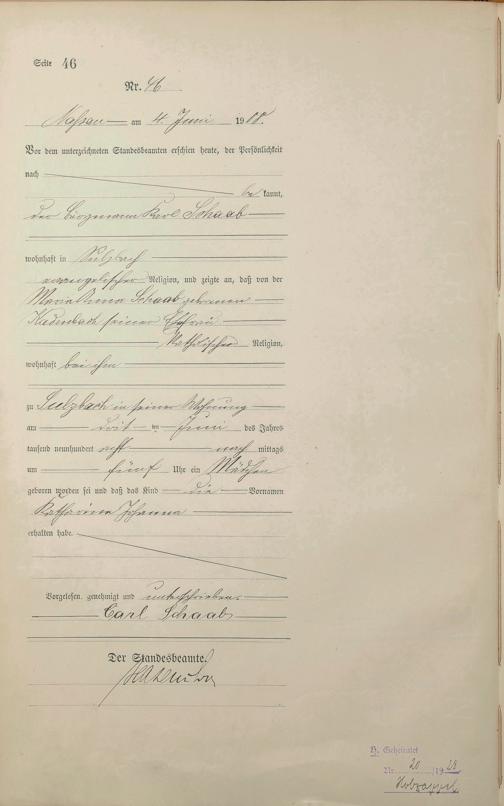 Seite 46
Nr. 46
Nassau am 4. Juni 1908.
Vor dem unterzeichneten Standesbeamten erschien heute, der Persönlichkeit
nach
be kannt,
der Bergmann Karl Schaab
wohnhaft in Sulzbach
evangelischer Religion, und zeigte an, daß von der
Maria Anna Schaab geborenen
Kadenbach seiner Ehefrau
katholischer Religion,
wohnhaft bei ihm
zu Sulzbach in seiner Wohnung
am drit ten Juni des Jahres
tausend neunhundert acht nach mittags
um fünf Uhr ein Mädchen
geboren worden sei und daß das Kind die Vornamen
Katharina Johanna
erhalten habe.
Vorgelesen, genehmigt und unterschrieben
Carl Schaab
Der Standesbeamte.
H. Geheiratet
Nr. 20 /19 28
Holzappel